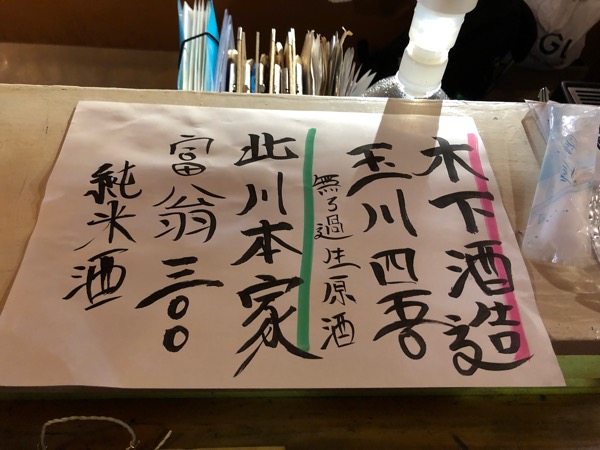 木下酒造
玉川四吾
無ろ過生原酒
北川本家
富翁三〇〇
純米酒